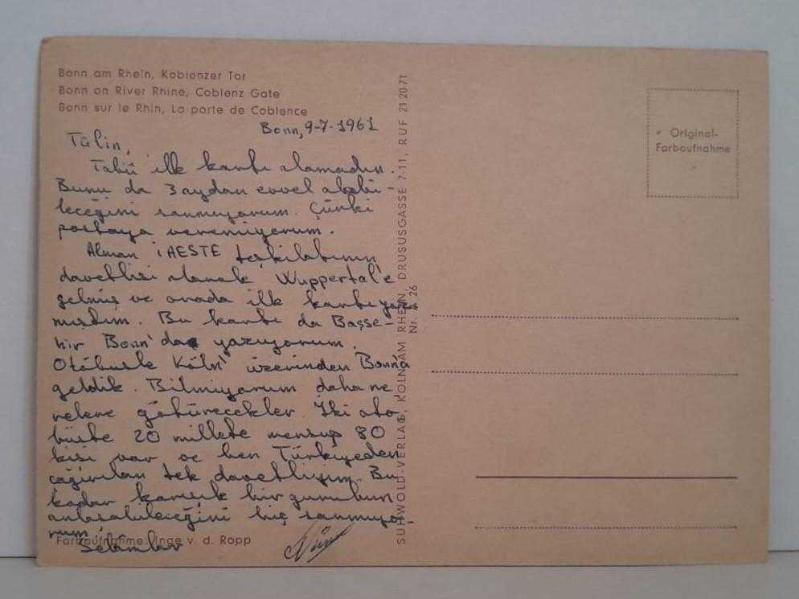 Bonn am Rhein, Koblenzer Tor
Bonn on River Rhine, Coblenz Gate
Bonn sur le Rhin, La porte de Coblence
Bonn, 9-7-1961
Tülin,
Tabii ilk kartı alamadın.
Bunu da 3 aydan evvel alabi-
leceğini sanmıyorum. Çünki
postaya veremiyorum.
Alman İAESTE teşkilatının
davetlisi olarak Wuppertal'e
gelmiş ve orada ilk kartı yaz-
mıştım. Bu kartı da Başşe-
hir Bonn'dan yazıyorum.
Otobüsle Köln üzerinden Bonn'a
geldik. Bilmiyorum daha ne
relere götürecekler. İki oto
büste 20 millete mensup 80
kişi var ve ben Türkiyeden
çağırılan tek davetliyim. Bu
kadar karışık bir gurubun
anlaşabileceğini hiç sanmıyo-
rum.
Selamlar
Farbaufnahme: Inge v. d. Ropp
SUHWOLD-VERLAG, KÖLN AM RHEIN, DRUSUSGASSE 7-11, RUF 21 20 71
Nr. 26
Original-
Farbaufnahme